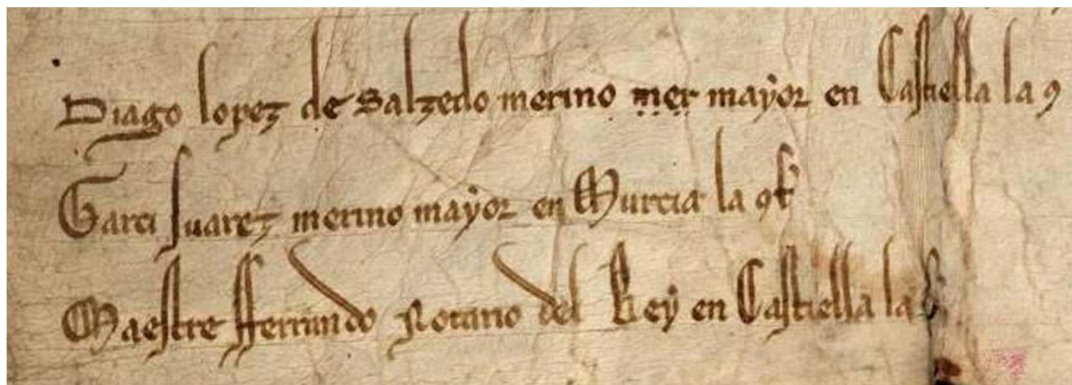 Diago lopez de Salzedo merino mer mayor en Castiella la
Garci Suarez merino mayor en Murcia la
Maestre fferrando Notario del Rey en Castiella la